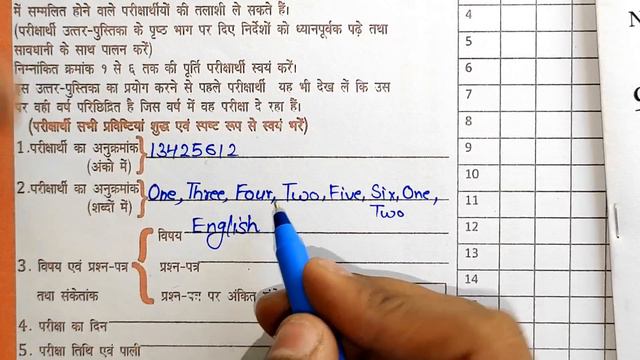 में सम्मलित होने वाले परीक्षार्थीयों की तलाशी ले सकते हैं।
(परीक्षार्थी उत्तर-पुस्तिका के पृष्ठ भाग पर दिए निर्देशों को ध्यानपूर्वक पढ़े तथा
सावधानी के साथ पालन करें)
निम्नांकित क्रमांक १ से ६ तक की पूर्ति परीक्षार्थी स्वयं करें।
इस उत्तर-पुस्तिका का प्रयोग करने से पहले परीक्षार्थी यह भी देख लें कि उस
पर वही वर्ष परिछिद्रित है जिस वर्ष में वह परीक्षा दे रहा हैं।
(परीक्षार्थी सभी प्रविष्टियां शुद्ध एवं स्पष्ट रूप से स्वयं भरें)
1. परीक्षार्थी का अनुक्रमांक 13425612
(अंको में)
2. परीक्षार्थी का अनुक्रमांक One, Three, Four, Two, Five, Six, One,
(शब्दों में) Two
विषय English
3. विषय एवं प्रश्न-पत्र प्रश्न-पत्र
तथा संकेतांक प्रश्न-पत्र पर अंकित
4. परीक्षा का दिन
5. परीक्षा तिथि एवं पाली
4
5
6
7
8
9
10
11
12
13
14